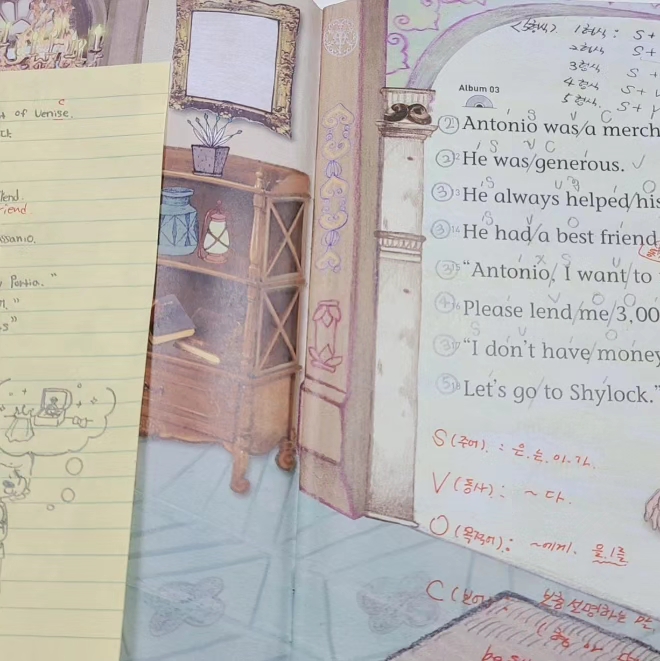 of Venise.
c
다.
lend.
riend
ssanio.
Portia."
<5형식> 1형식 : S +
2형식 S +
3형식 S +
4형식 S + V
5형식. S + V
Album 03
② Antonio was/a merch
② 2 He was/generous.
③ 3 He always helped/his
③ 4 He had/a best friend
③ 5 "Antonio, I want/to
④ 6 Please lend/me/3,00
③ 7 "I don't have/money
⑤ 8 Let's go/to Shylock."
S (주어) : 은. 는. 이. 가.
V (동사) : ~ 다.
O (목적어) : ~에게. 을/를
C (보어) 보충 설명하는 말